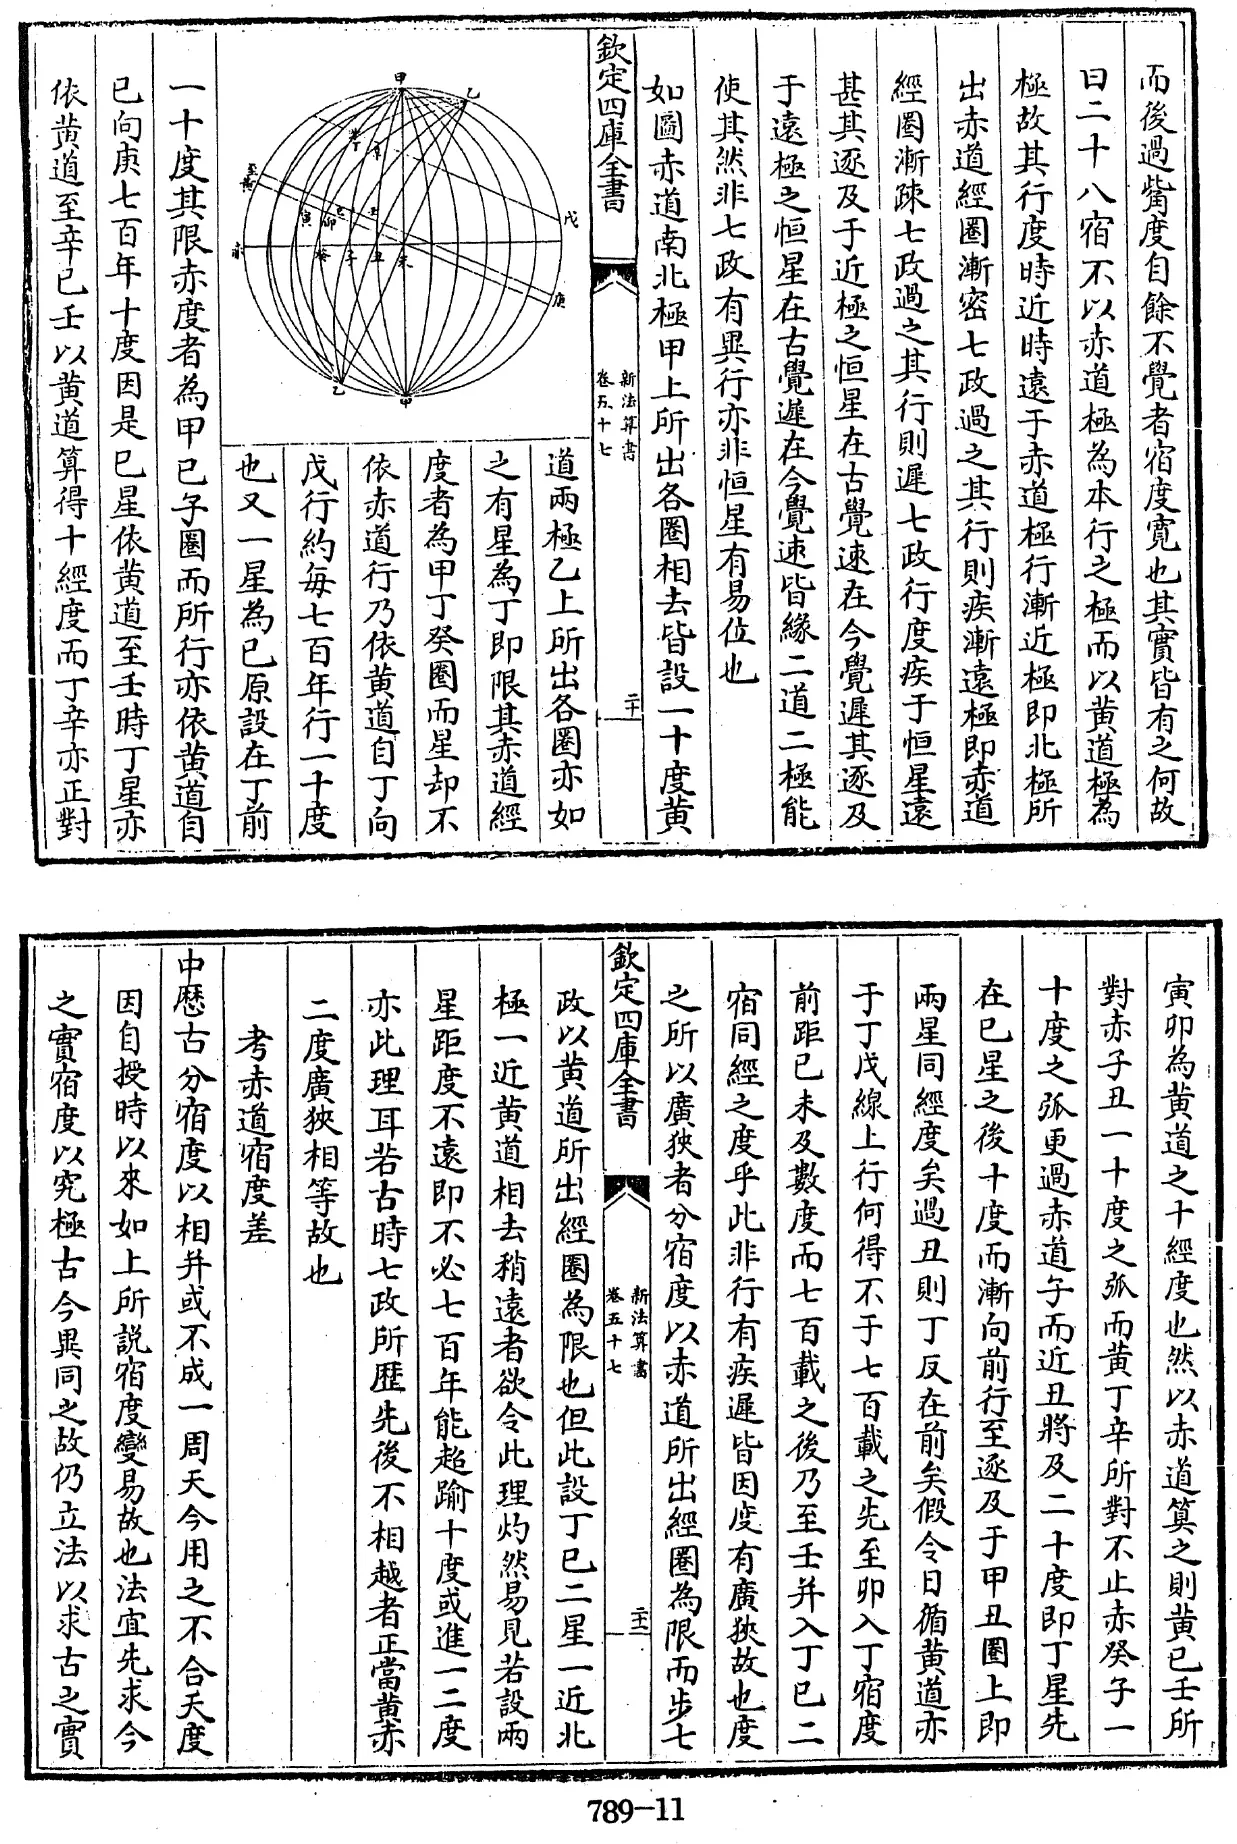 而後過觜度自餘不覺者宿度寛也其實皆有之何故
曰二十八宿不以赤道極為本行之極而以黄道極為
極故其行度時近時遠于赤道極行漸近極即北極所
出赤道經圏漸密七政過之其行則疾漸遠極即赤道
經圏漸疎七政過之其行則遲七政行度疾于恒星遠
甚其逐及于近極之恒星在古覺速在今覺遲其逐及
于遠極之恒星在古覺遲在今覺速皆緣二道二極能
使其然非七政有異行亦非恒星有易位也
如圖赤道南北極甲上所出各圏相去皆設一十度黄
道兩極乙上所出各圏亦如
之有星為丁即限其赤道經
度者為甲丁癸圏而星却不
依赤道行乃依黄道自丁向
戊行約每七百年行一十度
也又一星為已原設在丁前
一十度其限赤度者為甲已子圏而所行亦依黄道自
已向庚七百年十度因是已星依黄道至壬時丁星亦
依黄道至辛已壬以黄道算得十經度而丁辛亦正對
欽定四庫全書
新法算書
卷五十七
二十
甲
乙
戊
庚
赤
寅
卯
已
壬
癸
子
丑
未
乙
甲
寅卯為黄道之十經度也然以赤道算之則黄已壬所
對赤子丑一十度之弧而黄丁辛所對不止赤癸子一
十度之弧更過赤道子而近丑將及二十度即丁星先
在已星之後十度而漸向前行至逐及于甲丑圏上即
兩星同經度矣過丑則丁反在前矣假令日循黄道亦
于丁戊線上行何得不于七百載之先至卯入丁宿度
前距已未及數度而七百載之後乃至壬并入丁已二
宿同經之度乎此非行有疾遲皆因度有廣狹故也度
之所以廣狹者分宿度以赤道所出經圏為限而步七
政以黄道所出經圏為限也但此設丁已二星一近北
極一近黄道相去稍遠者欲令此理灼然易見若設兩
星距度不遠即不必七百年能超踰十度或進一二度
亦此理耳若古時七政所歴先後不相越者正當黄赤
二度廣狹相等故也
考赤道宿度差
中歴古分宿度以相并或不成一周天今用之不合天度
因自授時以來如上所説宿度變易故也法宜先求今
之實宿度以究極古今異同之故仍立法以求古之實
欽定四庫全書
新法算書
卷五十七
二十一
789-11